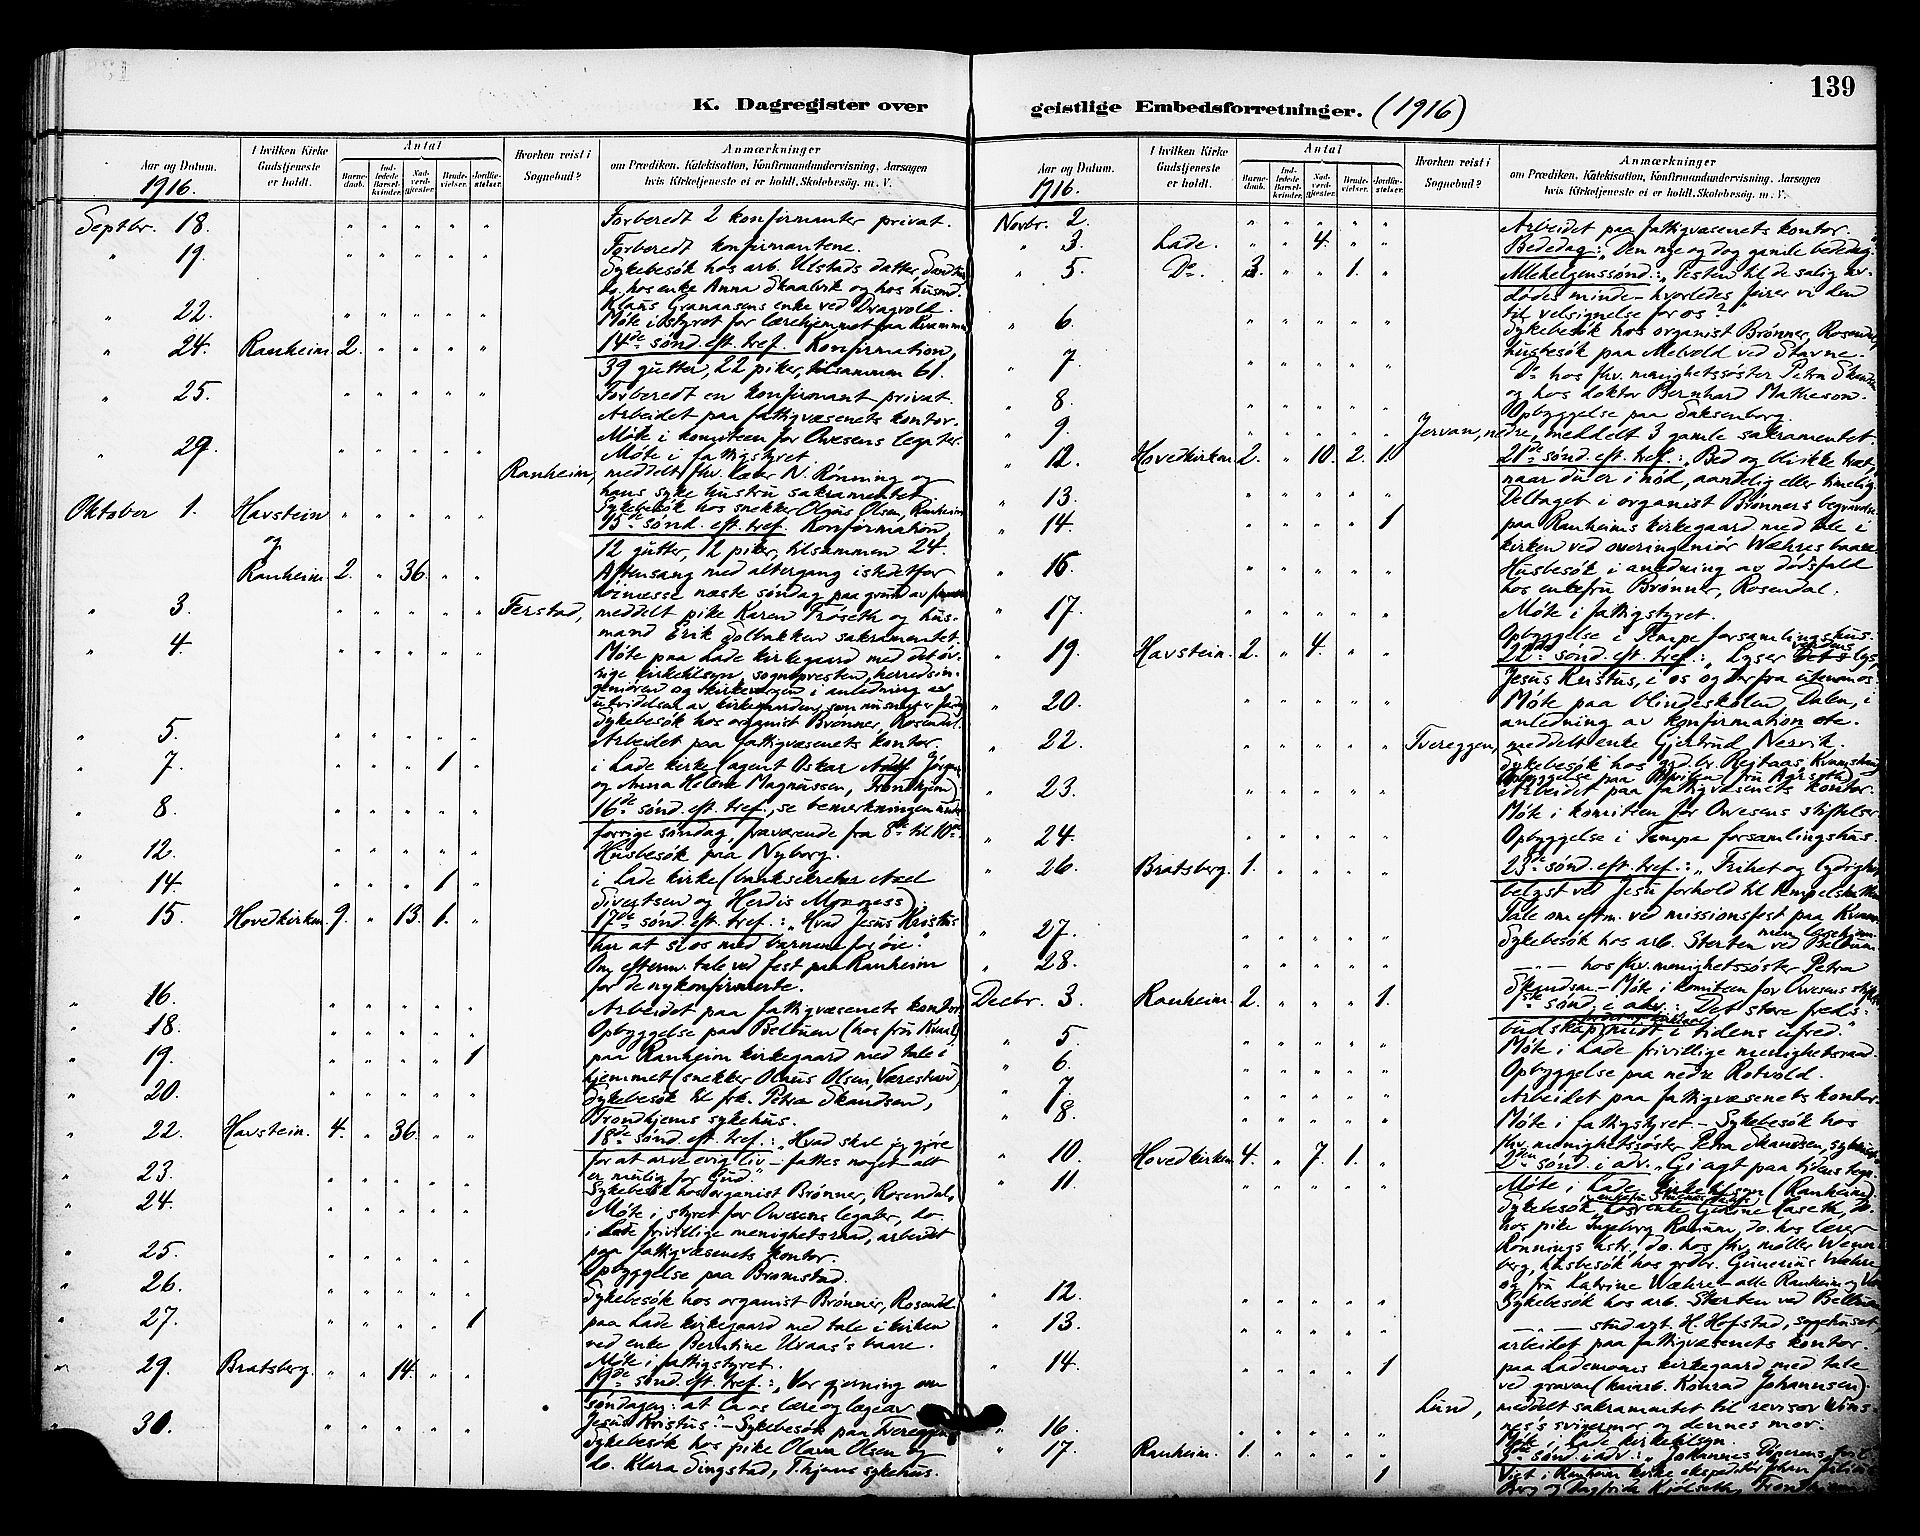 139
K. Dagregister over geistlige Embedsforretninger. (1916)
Aar og Datum.
1916.
I hvilken Kirke Gudstjeneste er holdt.
Antal
Barnedaab.
Indledede Barselkvinder.
Nadverdgjester.
Brudevielser.
Jordfæstelser.
Hvorhen reist i Sognebud?
Anmærkninger
om Prædiken, Katekisation, Konfirmandundervisning, Aarsagen
hvis Kirketjeneste ei er holdt, Skolebesøg. m. V.
Septbr. 18. " " " " " Forberedt 2 konfirmanter privat.
" 19. " " " " " Forberedt konfirmantene.
Sykebesök hos arb. Ulstads datter,
hos enke Anna Skaalvik og hos husmd.
Klaus Granansens enke ved Dragvold.
" 22. " " " " " Möte i styret for lærehjemmet paa Kvammen
" 24. Ranheim 2. " " " " 14de sönd. eft. tref. Konfirmation,
39 gutter, 22 piker, tilsammen 61.
" 25. " " " " " Forberedt en konfirmant privat.
Arbeidet paa fattigvæsenets kontor.
Möte i komiteen for Owesens legater.
" 29. " " " " " Möte i fattigstyret.
Ranheim, meddelt fhv. lærer N. Rönning og
hans syke hustru sakramentet.
Sykebesök hos snekker Olaus Olsen, Ranheim
Oktober 1. Havstein " " " " " 15de sönd. eft. tref. Konfirmation
og
12 gutter, 12 piker, tilsammen 24.
Ranheim. 2. " 36. " " Aftensang med altergang istedetfor
höimesse næste söndag paa grund av
" 3. " " " " " Ferstad, meddelt pike Karen Fröseth og hus-
mand Erik Solbakken sakramentet.
" 4. Möte paa Lade kirkegaard med det öv-
rige kirketilsyn, sognepresten, herredsin-
geniören og kirkevergen i anledning av
utvidelsen av kirkegaarden, som nu snart er færdig
Sykebesök hos organist Brönner, Rosendal.
" 5. " " " " " Arbeidet paa fattigvæsenets kontor.
" 7. " " " 1 " i Lade kirke (agent Oskar
og Anna Helene Magnussen, Trondhjem)
" 8. " " " " " 16de sönd. eft. tref., se bemerkningen under
forrige söndag, fraværende fra 8de til 10de
" 12. " " " " " Husbesök paa Nyborg.
" 14. " " " 1 " i Lade kirke (banksekretær Axel
Sivertsen og Herdis Moxness).
" 15. Hovedkirken 9. " 13. 1. " 17de sönd. eft. tref.: „Hvad Jesus Kristus
har at si os med barnene for öie."
Om efterm. tale ved fest paa Ranheim
for de nykonfirmerte.
" 16. " " " " " Arbeidet paa fattigvæsenets kontor
" 18. " " " " " Opbyggelse paa Belbuan (hos fru Kvaal)
" 19. " " " " 1 paa Ranheim kirkegaard med tale i
hjemmet (snekker Olaus Olsen, Værestrand)
" 20. " " " " " Sykebesök til frk. Petra Skandsen,
Trondhjems sykehus.
" 22. Havstein. 4. " 36. " " 18de sönd. eft. tref.: „Hvad skal jeg gjöre
for at arve evig liv – fattes noget – alt
er mulig for Gud."
" 23. " " " " " Sykebesök hos organist Brönner, Rosendal,
" 24. " " " " " Möte i styret for Owesens legater, do.
i Lade frivillige menighetsraad, arbeidet
paa fattigvæsenets kontor.
" 25. " " " " " Opbyggelse paa Bromstad.
" 26. " " " " " Sykebesök hos organist Brönner, Rosendal
" 27. " " " " 1 paa Lade kirkegaard med tale i kirken
ved enke Berntine Uvaas's baare.
Möte i fattigstyret.
" 29. Bratsberg. " " 14. " " 19de sönd. eft. tref.: „Vor gjerning om
söndagen: at la os lære og læge av
Jesus Kristus". – Sykebesök paa Tvereggen
" 30. " " " " " Sykebesök hos pike Olava Olsen og
do. Klara Singstad, T.hjems sykehus.
Aar og Datum.
1916.
I hvilken Kirke Gudstjeneste er holdt.
Antal
Barnedaab.
Indledede Barselkvinder.
Nadverdgjester.
Brudevielser.
Jordfæstelser.
Hvorhen reist i Sognebud?
Anmærkninger
om Prædiken, Katekisation, Konfirmandundervisning, Aarsagen
hvis Kirketjeneste ei er holdt, Skolebesøg. m. V.
Novbr. 2. " " " " " Arbeidet paa fattigvæsenets kontor.
" 3. Lade. " " 4. " " Bededag: „Den nye og dog gamle bededag.
" 5. Do. 3. " " 1. " Allehelgenssönd.: „Festen til de salig hen-
södes minde – hvorledes feirer vi den
til velsignelse for os?
" 6. " " " " " Sykebesök hos organist Brönner, Rosendal,
husbesök paa Melvold ved Stavne.
" 7. " " " " " Do. hos fhv. menighetssöster Petra Skandsen
og hos doktor Bernhard Matheson.
" 8. " " " " " Opbyggelse paa Saksenborg.
" 9. " " " " " Jervan, nedre, meddelt 3 gamle sakramentet.
" 12. Hovedkirken 2. " 10. 2. 1. 21de sönd. eft. tref.: „Bed og bli ikke træt,
naar du er i nöd, aandelig eller timelig
" 13. " " " " " Deltaget i organist Brönners begravelse
" 14. " " " " 1 paa Ranheims kirkegaard med tale i
kirken ved overingeniör Wæhres baare.
" 15. " " " " " Husbesök i anledning av dödsfald
hos enkefru Brönner, Rosendal.
" 17. " " " " " Möte i fattigstyret.
Opbyggelse i Tempe forsamlingshus.
" 19. Havstein. 2. " 4. " " 22de sönd. eft. tref.: „Lyser verdens lys,
Jesus Kristus, i os og derfra utenom os.
" 20. " " " " " Möte paa blindeskolen, Dalen, i
anledning av konfirmation ete.
" 22. " " " " " Tvereggen, meddelt enke Gjertrud Nervik.
Sykebesök hos grdbr. Reitaas,
Opbyggelse paa
" 23. " " " " " Arbeidet paa fattigvæsenets kontor.
Möte i komiteen for Owesens stiftelser
" 24. " " " " " Opbyggelse i Tempe forsamlingshus.
" 26. Bratsberg. 1. " " " " 23de sönd. eft. tref.: „Frihet og lydighet
belyst ved Jesu forhold til tempelskatten
Tale om eftm. ved missionsfest paa Kvam-
men lærehjem.
" 27. " " " " " Sykebesök hos arb. Sterten ved Belbuan
" 28. " " " " " –"– hos fhv. menighetssöster Petra
Skandsen. – Möte i komiteen for Owesens
Decbr. 3. Ranheim. 2. " " " 1. 1ste sönd. i adv.: „Det store freds-
budskap midt i tidens ufred."
" 5. " " " " " Möte i Lade frivillige menighetsraad.
" 6. " " " " " Opbyggelse paa nedre Rotvold.
" 7. " " " " " Arbeidet paa fattigvæsenets kontor.
" 8. " " " " " Möte i fattigstyret – Sykebesök hos
fhv. menighetssöster Petra Skandsen,
" 10. Hovedkirken 4. " 7. 1. " 2den sönd. i adv. „Gi agt paa tidens tegn.
" 11. " " " " " Möte i Lade kirketilsyn (Ranheim).
Sykebesök hos enke Gurine Laseth, do.
hos pike Ingeborg Ranum, do. hos lærer
Rönnings hstr., do. hos fhv. möller Wenn-
berg, husbesök hos grdbr. Gunerius Wæhre
og fru Katrine Wæhre – alle Ranheim og
" 12. " " " " " Sykebesök hos arb. Sterten ved Belbuan
" 13. " " " " " –"– stud. agt. H. Hofstad, sykehuset,
arbeidet paa fattigvæsenets kontor.
" 14. " " " " 1 paa Lademoens kirkegaard med tale
ved graven ( Konrad Johannsen).
Lund, meddelt sakramentet til revisor
svigermor og dennes mor.
" 16. " " " " " Möte i Lade kirketilsyn.
" 17. Ranheim. 1. " " " " 3de sönd. i adv.: „Johannes Döperens
1 Viet i Ranheim kirke ekspeditör Johan
Berg og Dagfrida